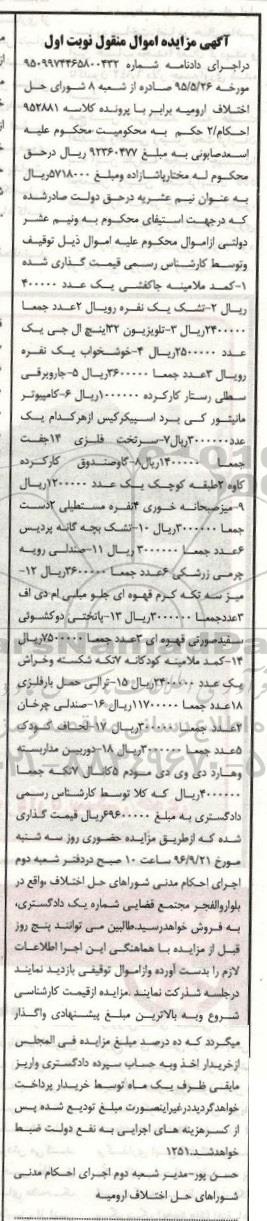 آگهی مزایده اموال منقول نوبت اول
دراجرای دادنامه شماره ۹۵۰۹۹۷۴۴۶۵۸۰۰۴۳۲
مورخه ۹۵/۵/۲۶ صادره از شعبه ۸ شورای حل
اختلاف ارومیه برابر با پرونده کلاسه ۹۵۲۸۸۱
احکام/۲ حکم به محکومیت محکوم علیه
اسعدصابونی به مبلغ ۹۲۳۶۰۴۷۷ ریال درحق
محکوم له مختارپاشازاده ومبلغ ۵۷۱۸۰۰۰ریال
به عنوان نیم عشریه درحق دولت صادرشده
که درجهت استیفای محکوم به ونیم عشر
دولتی ازاموال محکوم علیه اموال ذیل توقیف
وتوسط کارشناس رسمی قیمت گذاری شده
۱-کمد ملامینه جاکفشی یک عدد ۴۰۰۰۰۰
ریال ۲-تشک یک نفره رویال ۲عدد جمعا
۲۴۰۰۰۰۰ریال ۳-تلویزیون ۳۲اینچ ال جی یک
عدد ۲۵۰۰۰۰۰ریال ۴-خوشخواب یک نفره
رویال ۳عدد جمعا ۳۶۰۰۰۰۰ریال ۵-جاروبرقی
سطلی رستار کارکرده ۱۰۰۰۰۰۰ریال ۶-کامپیوتر
مانیتور کی برد اسپیکرکیس ازهرکدام یک
عدد۳۰۰۰۰۰۰ریال۷-سرتخت فلزی ۱۴جفت
جمعا ۱۴۰۰۰۰۰ریال۸-گاوصندوق کارکرده
کاوه ۲طبقه کوچک یک عدد ۱۲۰۰۰۰۰۰ریال
۹-میزصبحانه خوری ۴نفره مستطیلی ۲دست
جمعا ۳۰۰۰۰۰۰ریال ۱۰-تشک بچه گانه پردیس
۶عدد جمعا ۳۰۰۰۰۰۰ ریال ۱۱-صندلی رویه
چرمی زرشکی ۶عدد جمعا ۳۶۰۰۰۰۰ریال ۱۲-
میز سه تکه کرم قهوه ای جلو مبلی ام دی اف
۳عددجمعا ۳۰۰۰۰۰۰ریال ۱۳-پاتختی دوکشوئی
سفیدصورتی قهوه ای ۳عدد جمعا ۷۵۰۰۰۰۰ریال
۱۴-کمد ملامینه کودکانه ۷تکه شکسته وخراش
یک عدد ۲۴۰۰۰۰۰ریال ۱۵-ترالی حمل بارفلزی
۱۸عدد جمعا ۱۱۷۰۰۰۰۰ریال ۱۶-صندلی چرخان
۲عدد جمعا ۳۰۰۰۰۰۰ریال ۱۷-لحاف کودک
۵عدد جمعا ۳۰۰۰۰۰۰ریال ۱۸-دوربین مداربسته
وهارد دی وی دی مودم ۵کانال ۷تکه جمعا
۴۰۰۰۰۰۰ریال که کلا توسط کارشناس رسمی
دادگستری به مبلغ ۶۹۶۰۰۰۰۰ریال قیمت گذاری
شده که ازطریق مزایده حضوری روز سه شنبه
مورخ ۹۶/۹/۲۱ ساعت ۱۰ صبح دردفتر شعبه دوم
اجرای احکام مدنی شوراهای حل اختلاف ،واقع در
بلوارولفجر مجتمع قضایی شماره یک دادگستری،
به فروش خواهدرسید.طالبین می توانند پنج روز
قبل از مزایده با هماهنگی این اجرا اطلاعات
لازم را بدست آورده وازاموال توقیفی بازدید نمایند
درجلسه شذرکت نمایند .مزایده ازقیمت کارشناسی
شروع وبه بالاترین مبلغ پیشنهادی واگذار
میگردد که ده درصد مبلغ مزایده فی المجلس
ازخریدار اخذ وبه حساب سپرده دادگستری واریز
مابقی ظرف یک ماه توسط خریدار پرداخت
خواهدگردیددرغیراینصورت مبلغ تودیع شده پس
از کسرهزینه های اجرایی به نفع دولت ضبط
خواهدشد.۱۲۵۱
حسن پور-مدیر شعبه دوم اجرای احکام مدنی
شوراهای حل اختلاف ارومیه